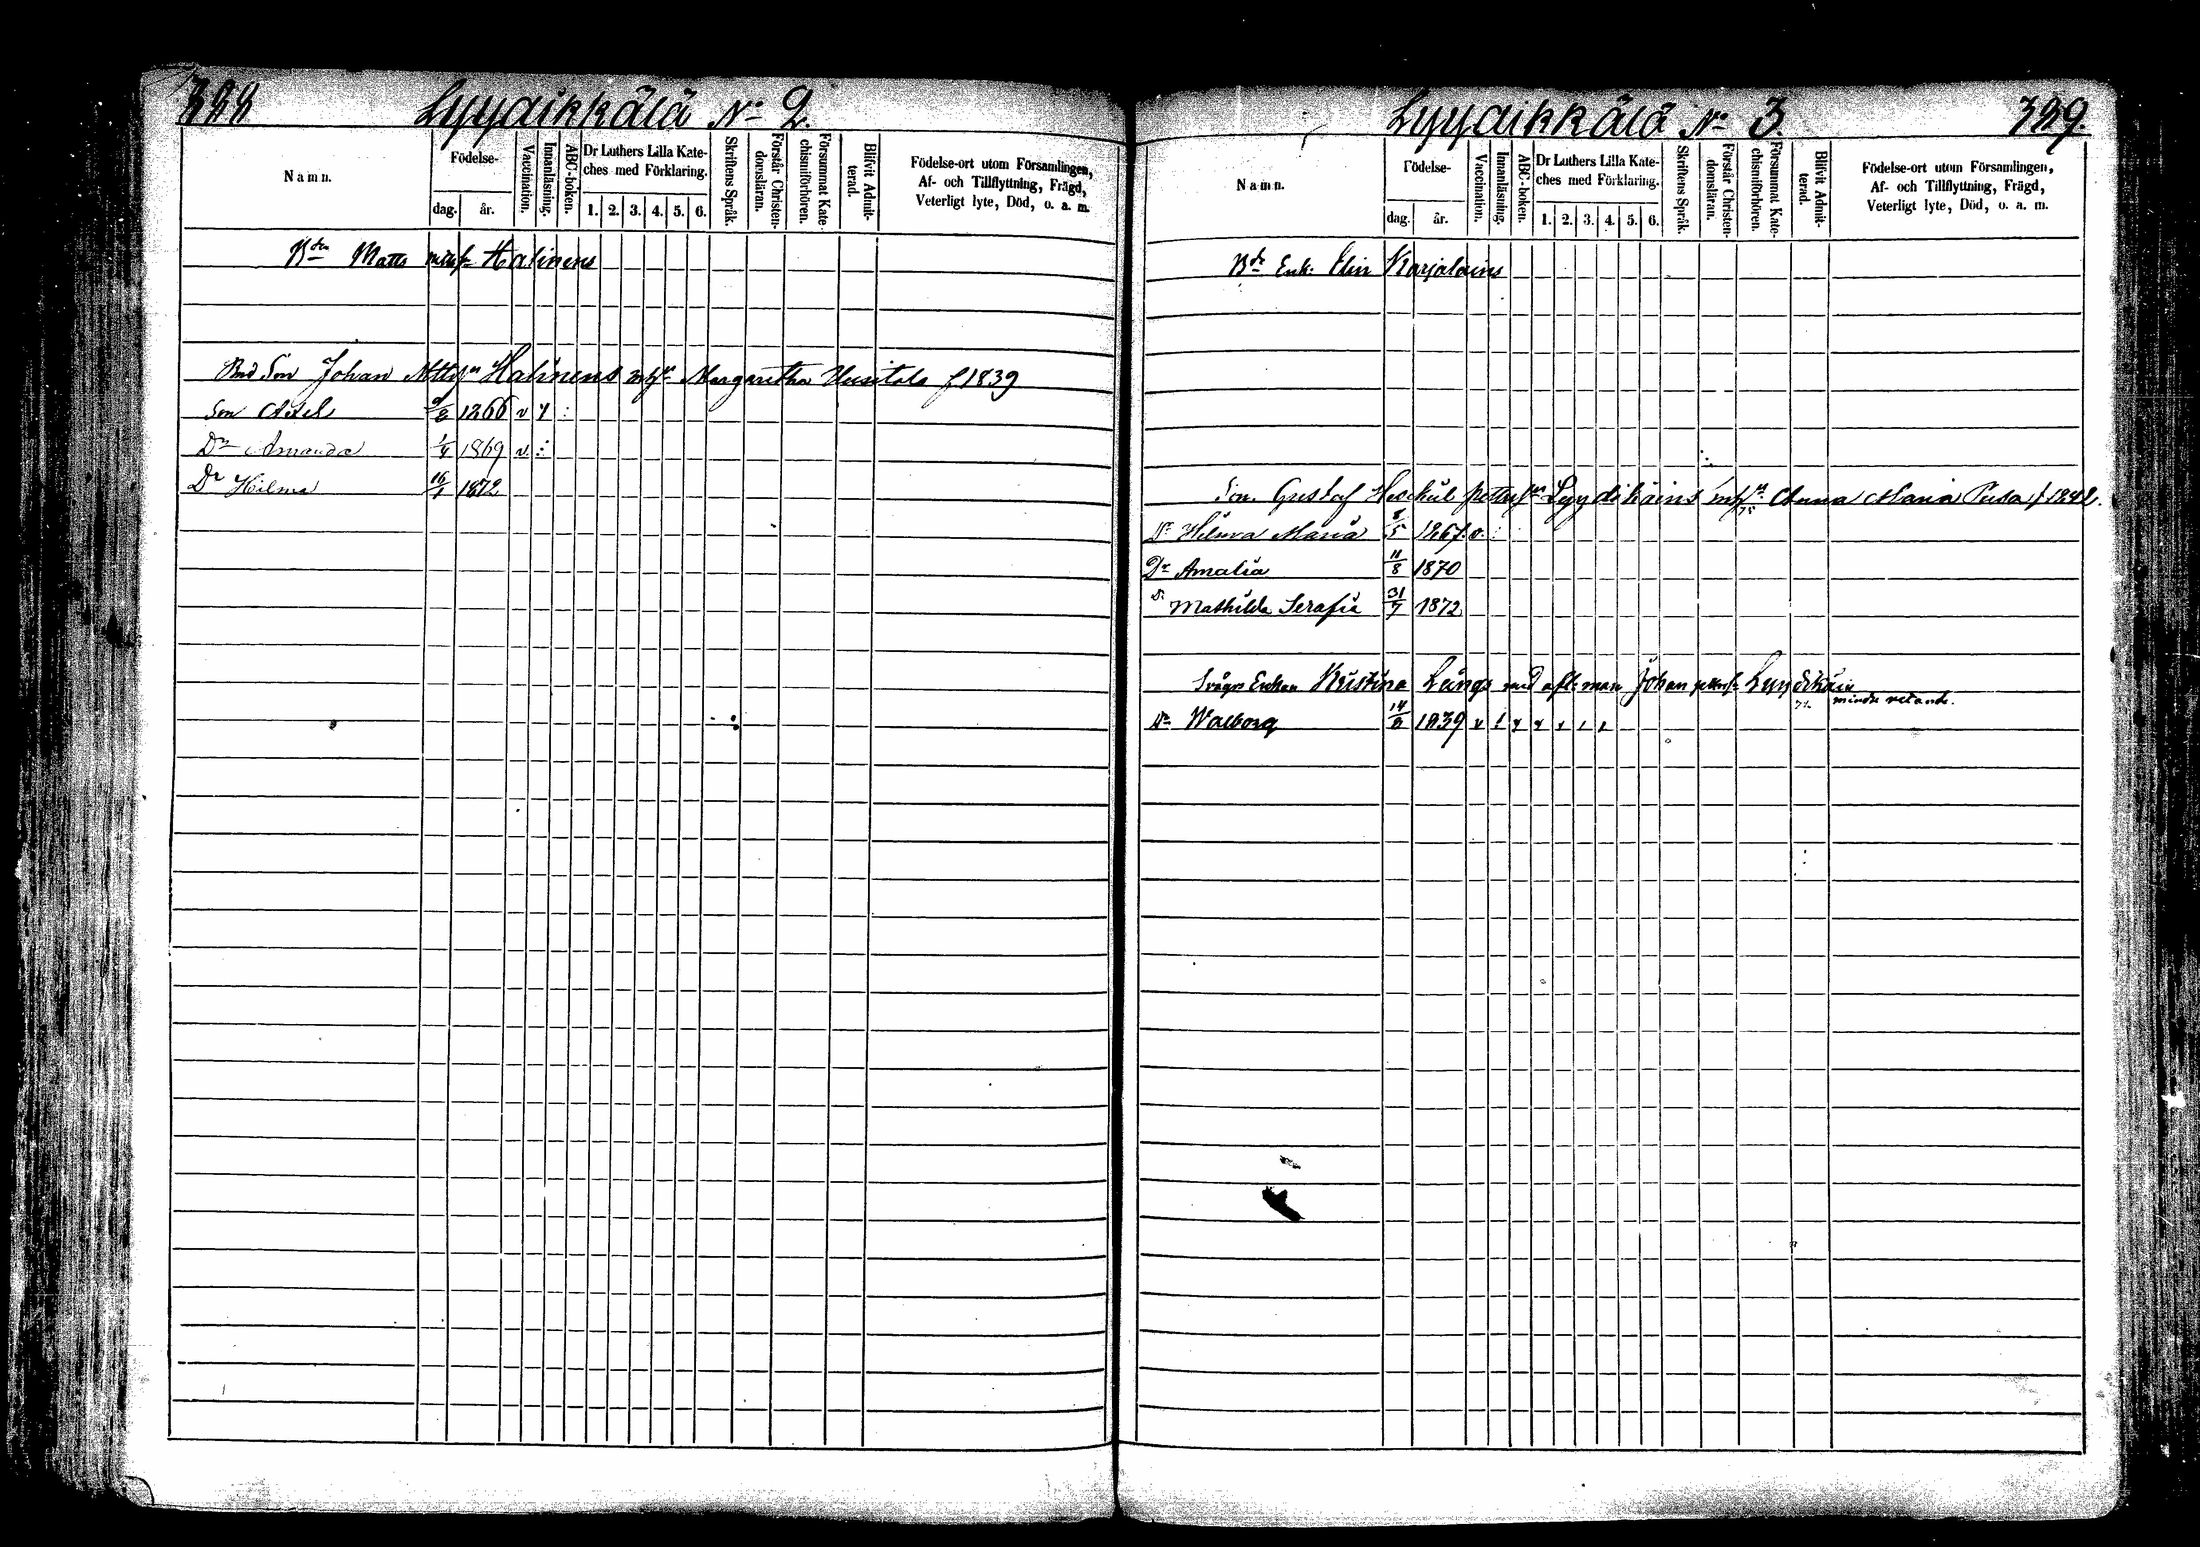 328 Lyyaikkälä No 2.
Namn.
Födelse-
dag. år.
Vaccination.
Innanläsning.
ABC-boken.
Dr Luthers Lilla Kate-
ches med Förklaring.
1. 2. 3. 4. 5. 6.
Skriftens Språk.
Förstår Christen-
domsläran.
Försummat Kate-
chismiförhören.
Blifvit Admit-
terad.
Födelse-ort utom Församlingen,
Af- och Tillflyttning, Frägd,
Veterligt lyte, Död, o. a. m.
Bdn Matts Halinens
Bnd Son Johan Halinens Margaretha Uusitalo f 1839
Son Axel 1866 v
Dr Amanda 1/4 1869 v
Dr Hilma 1872
Lyyaikkälä No 3. 329.
Namn.
Födelse-
dag. år.
Vaccination.
Innanläsning.
ABC-boken.
Dr Luthers Lilla Kate-
ches med Förklaring.
1. 2. 3. 4. 5. 6.
Skriftens Språk.
Förstår Christen-
domsläran.
Försummat Kate-
chismiförhören.
Blifvit Admit-
terad.
Födelse-ort utom Församlingen,
Af- och Tillflyttning, Frägd,
Veterligt lyte, Död, o. a. m.
Enk: Elin Karjalains
Son. Gustaf Anna Maria Pusa f 1842.
Dr Hilma Maria 8/5 1867. v.
Dr Amalia 11/8 1870
D. Mathilda Serafia 31/7 1872
Enkan Kristina med afl: man Johan
mindre vetande.
Dr Walborg 1839 v